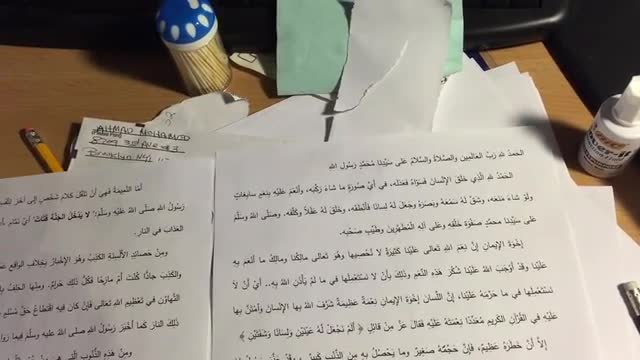 AHMAD MOHAMUD
الحمدُ للهِ رَبِّ العالمينَ والصَّلاةُ والسَّلامُ على سَيِّدِنا مُحمَّدٍ رَسُولِ اللهِ
الحمدُ للهِ الَّذي خَلَقَ الإنسانَ فَسَوَّاهُ فَعَدَلَه، في أيِّ صُورَةٍ ما شاءَ رَكَّبَه، وأَنعَمَ عَلَيْهِ بِنِعَمٍ سابِغاتٍ
ولَوْ شاءَ مَنَعَه، وشَقَّ لَهُ سَمْعَهُ وبَصَرَهُ وجَعَلَ لَهُ لِسانًا فَأَنْطَقَه، وخَلَقَ لَهُ عَقْلاً وكَلَّفَه. وصَلَّى اللهُ وسَلَّمَ
على سَيِّدِنا محمدٍ صَفْوَةِ خَلْقِهِ وعلى ءالِهِ المُطَهَّرينَ وطَيِّبِ صَحْبِه.
إخوةَ الإيمانِ إنَّ نِعَمَ اللهِ تعالى عَلَيْنا كَثيرَةٌ لا نُحْصِيها وهُوَ تعالى مالِكُنا ومالِكُ ما أَنْعَمَ بِهِ
عَلَيْنا وقَدْ أَوْجَبَ اللهُ عَلَيْنا شُكْرَ هذِهِ النِّعَمِ وذلكَ بِأَنْ لا نَسْتَعْمِلَها في ما لَمْ يَأْذَنِ اللهُ بِهِ.. أَيْ أَنْ لا
نَسْتَعْمِلَها في ما حَرَّمَهُ عَلَيْنا، إنَّ اللِّسانَ إخوةَ الإيمانِ نِعْمَةٌ عظيمةٌ شَرَّفَ اللهُ بِها الإنسانَ وَامْتَنَّ بِها
عَلَيْهِ في القُرْءانِ الكريمِ مُعَدِّدًا نِعْمَتَهُ عَلَيْهِ فقالَ عَزَّ مِنْ قائِلٍ ﴿ أَلَمْ نَجْعَلْ لَهُ عَيْنَيْنِ وَلِسانًا وَشَفَتَيْنِ ﴾
إلاَّ أَنَّ خَطَرَهُ عظيمٌ، فإنَّ حَجْمَهُ صَغيرٌ وما يَحْصُلُ بِهِ مِنَ الذَّنْبِ كبيرٌ
أمّا النَّميمةُ فهِيَ أَنْ تَنْقُلَ كلامَ شَخْصٍ إلى ءاخَرَ
رَسُولُ اللهِ صلى اللهُ عَلَيْهِ وسلَّمَ: لا يَدْخُلُ الجنَّةَ قَتَّاتٌ أَيْ نَمَّامٌ
العذابِ في النار.
ومِنْ خصائِدِ الألْسِنَةِ الكَذِبُ وهُوَ الإخبارُ بِخِلافِ الواقِعِ
والكَذِبُ جادًّا كُنْتَ أَمْ مازِحًا فَكُلُّ ذلكَ حَرامٌ. ومِنْها الحَلِفُ
التَّهاوُنُ في تَعْظيمِ اللهِ تعالى فإنْ كانَ فيهِ اقْتِطاعُ حَقِّ مُسْلِمٍ
ذلكَ النارَ كما أَخْبَرَ رَسُولُ اللهِ صلى اللهُ عليهِ وسلَّمَ فيما
ومِنْ هذِهِ الذُّنوبِ